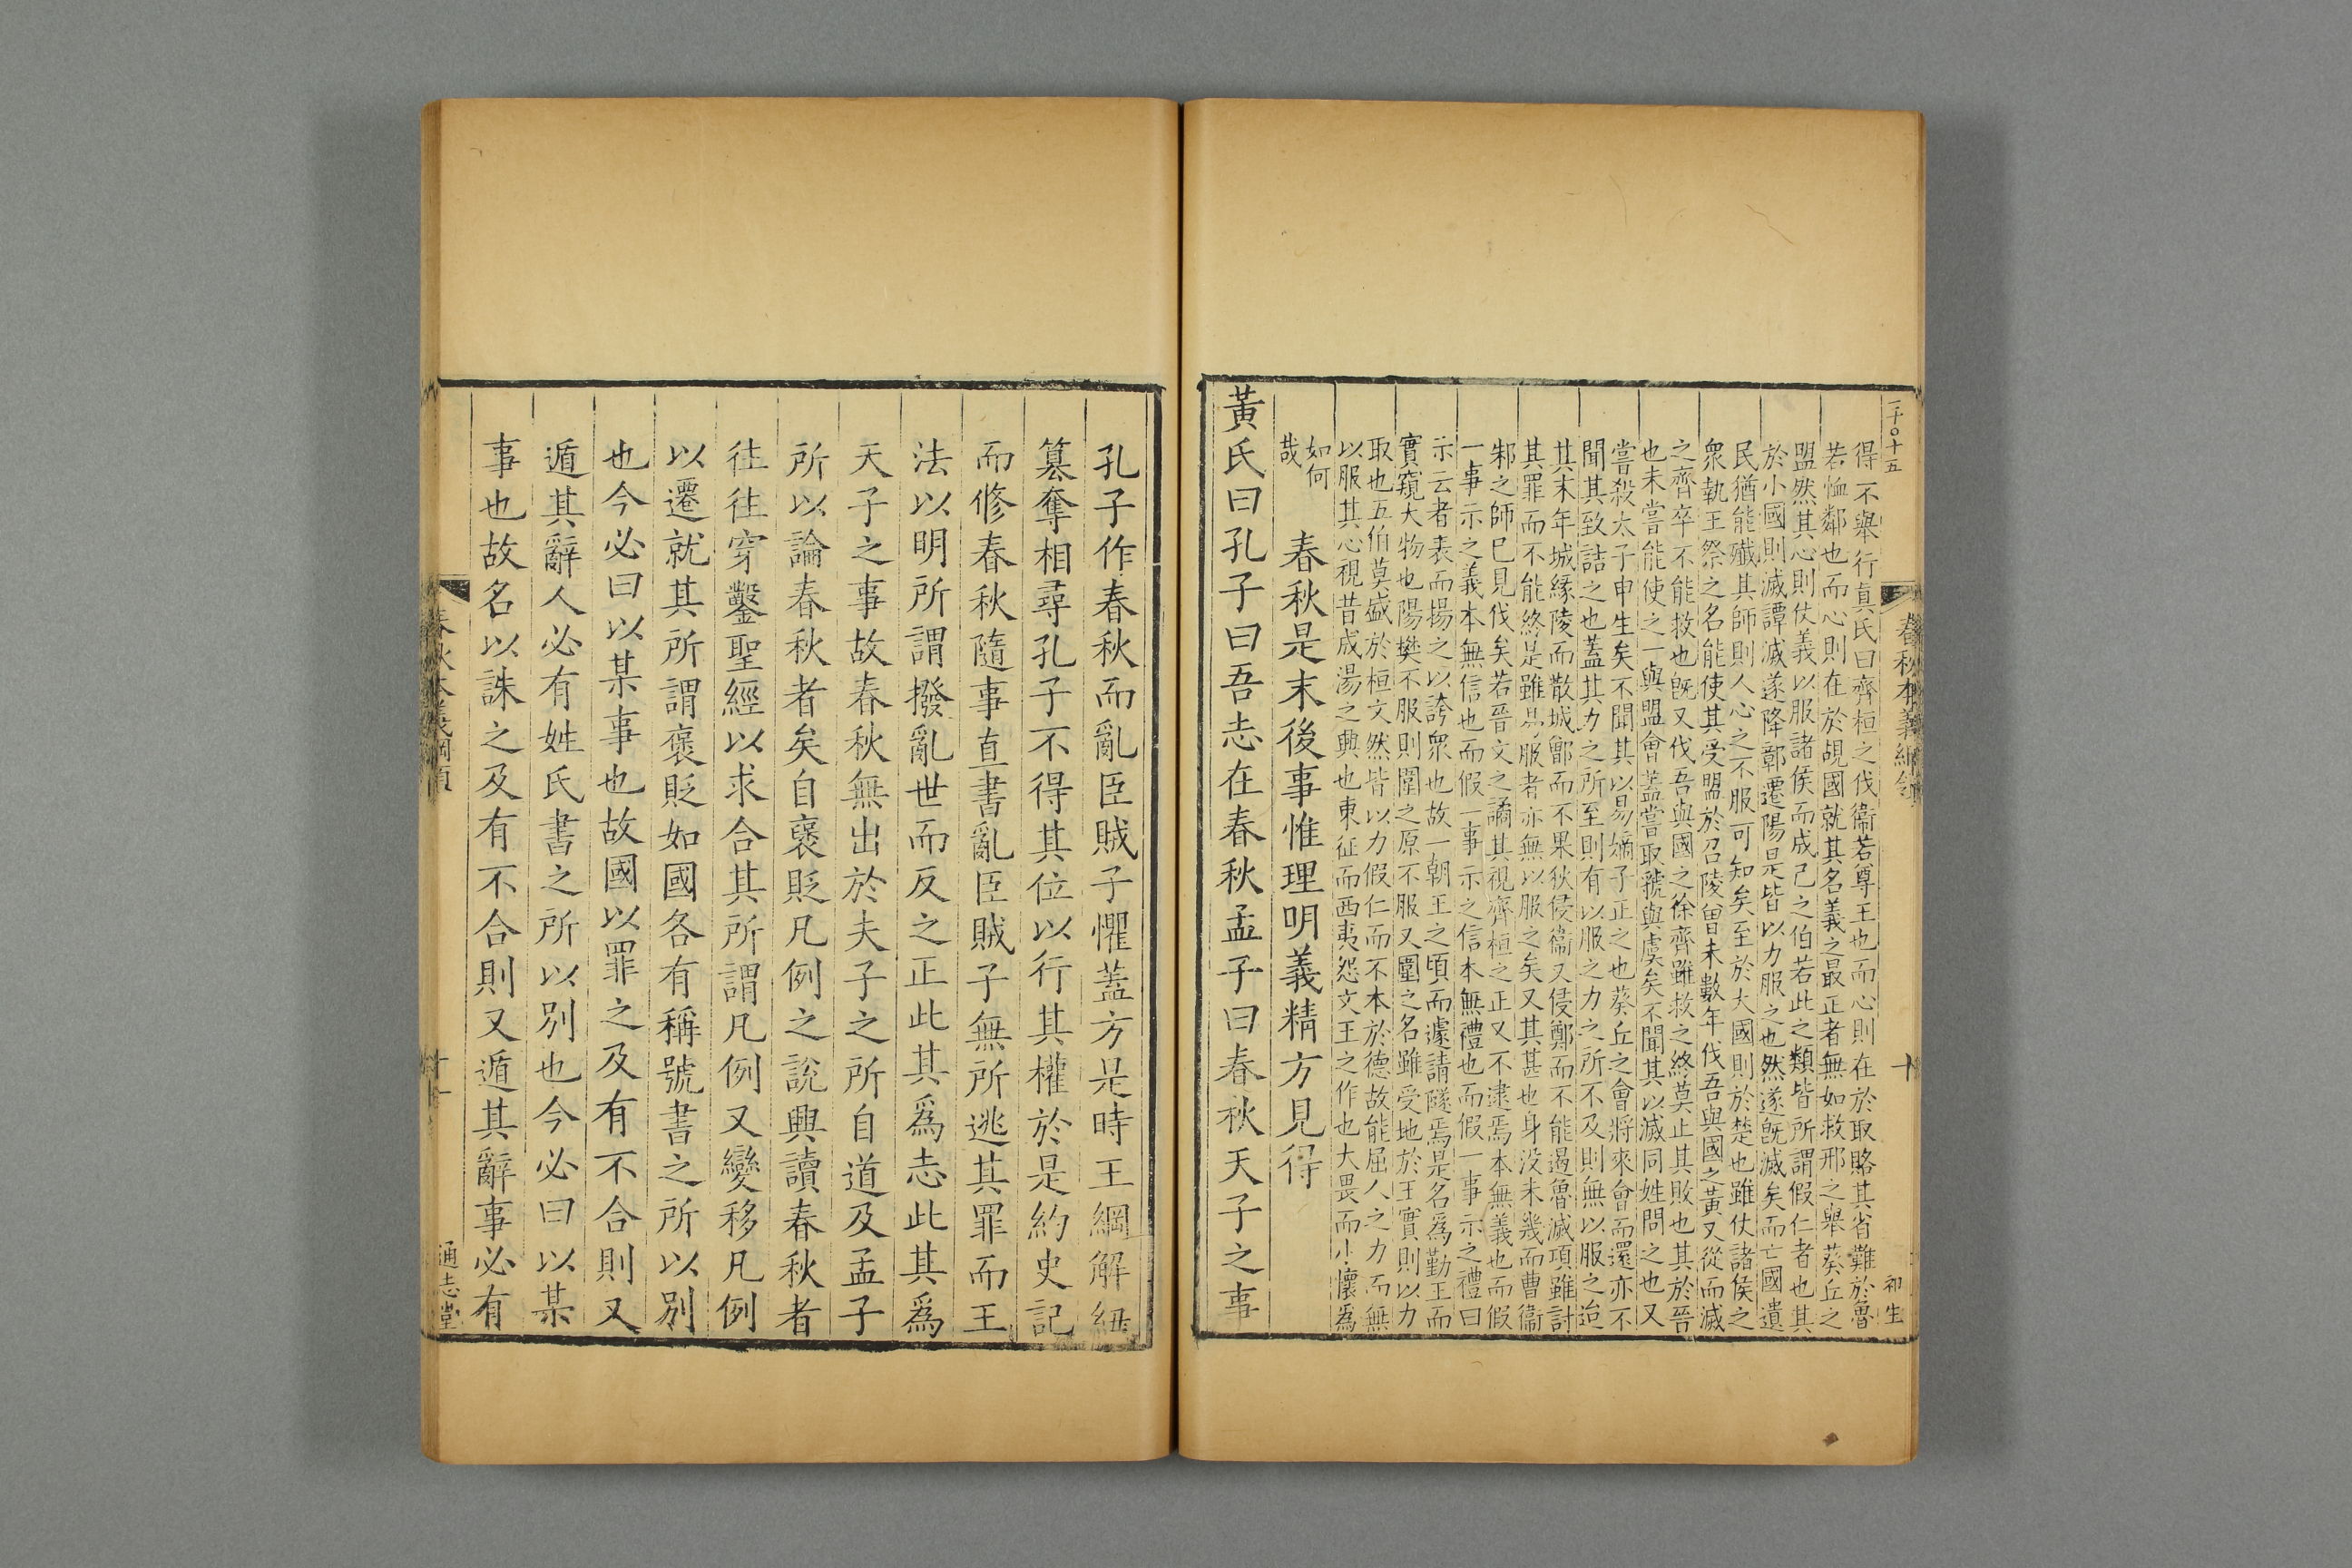 二千〇十五
春秋本義綱領
十
初生
得不舉行真氏曰齊桓之伐衞若尊王也而心則在於取賂其省難於魯
若恤鄰也而心則在於覘國就其名義之最正者無如救邢之舉葵丘之
盟然其心則仗義以服諸侯而成己之伯若此之類皆所謂假仁者也其
於小國則滅譚滅遂降鄣遷陽是皆以力服之也然遂旣滅矣而亡國遺
民猶能殲其師則人心之不服可知矣至於大國則於楚也雖仗諸侯之
衆執王祭之名能使其受盟於召陵曾未數年伐吾與國之黃又從而滅
之齊卒不能救也旣又伐吾與國之徐齊雖救之終莫止其敗也其於晉
也未嘗能使之一與盟會蓋嘗取虢與虞矣不聞其以滅同姓問之也又
嘗殺太子申生矣不聞其以易嫡子正之也葵丘之會將來會而還亦不
聞其致詰之也蓋其力之所至則有以服之力之所不及則無以服之迨
其末年城緣陵而散城鄫而不果狄侵衞又侵鄭而不能遏魯滅項雖討
其罪而不能終是雖易服者亦無以服之矣又其甚也身没未幾而曹衞
邾之師已見伐矣若晉文之譎其視齊桓之正又不逮焉本無義也而假
一事示之義本無信也而假一事示之信本無禮也而假一事示之禮曰
示云者表而揚之以誇衆也故一朝王之頃而遽請隧焉是名爲勤王而
實窺大物也陽樊不服則圍之原不服又圍之名雖受地於王實則以力
取也五伯莫盛於桓文然皆以力假仁而不本於德故能屈人之力而無
以服其心視昔成湯之興也東征而西夷怨文王之作也大畏而小懷爲
如何
哉
春秋是末後事惟理明義精方見得
黃氏曰孔子曰吾志在春秋孟子曰春秋天子之事
孔子作春秋而亂臣賊子懼蓋方是時王綱解紐
簒奪相尋孔子不得其位以行其權於是約史記
而修春秋隨事直書亂臣賊子無所逃其罪而王
法以明所謂撥亂世而反之正此其爲志此其爲
天子之事故春秋無出於夫子之所自道及孟子
所以論春秋者矣自褒貶凡例之說興讀春秋者
往往穿鑿聖經以求合其所謂凡例又變移凡例
以遷就其所謂褒貶如國各有稱號書之所以別
也今必曰以某事也故國以罪之及有不合則又
遁其辭人必有姓氏書之所以別也今必曰以某
事也故名以誅之及有不合則又遁其辭事必有
春秋本義綱領
十一
通志堂